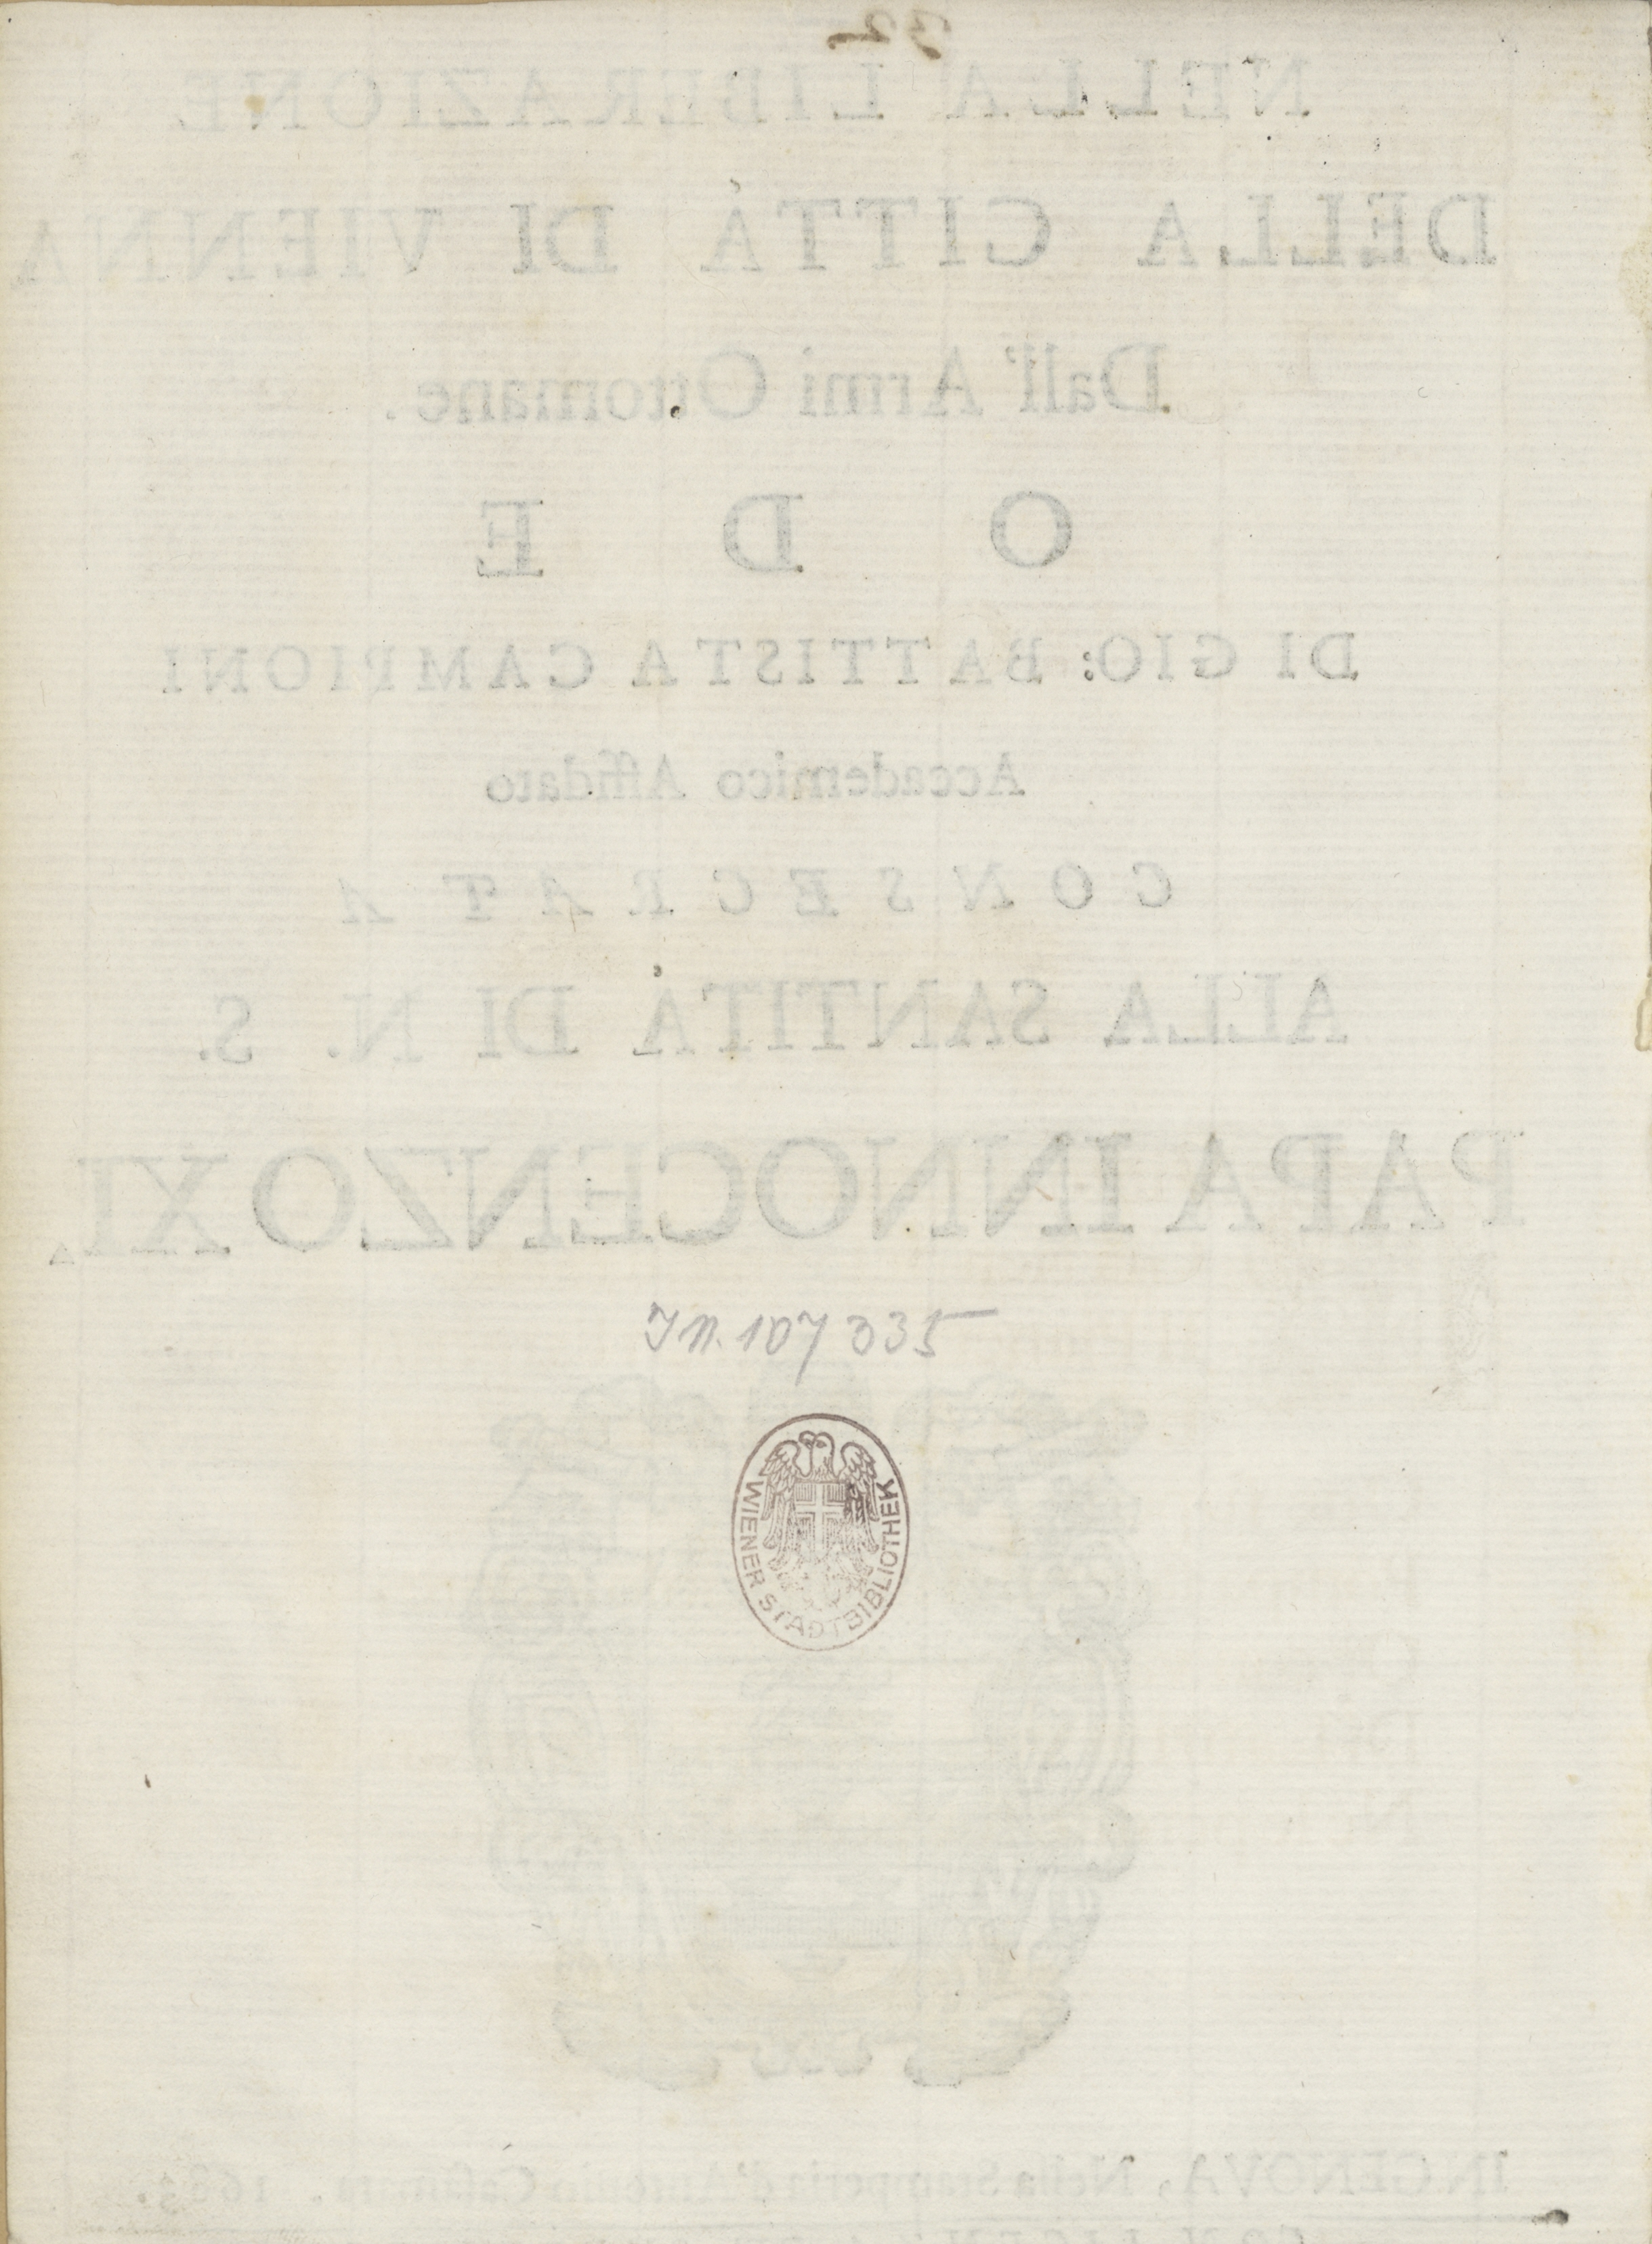 32
NELLA LIBERAZIONE
DELLA CITTÀ DI VIENNA
Dall' Armi Ottomane.
ODE
DI GIO: BATTISTA CAMPIONI
Accademico Affidato
CONSECRATA
ALLA SANTITÀ DI N. S.
PAPA INNOCENZO XI.
IN. 107335
WIENER STADTBIBLIOTHEK
IN GENOVA, Nella Stamperia d'Antonio Casamara. 1683.